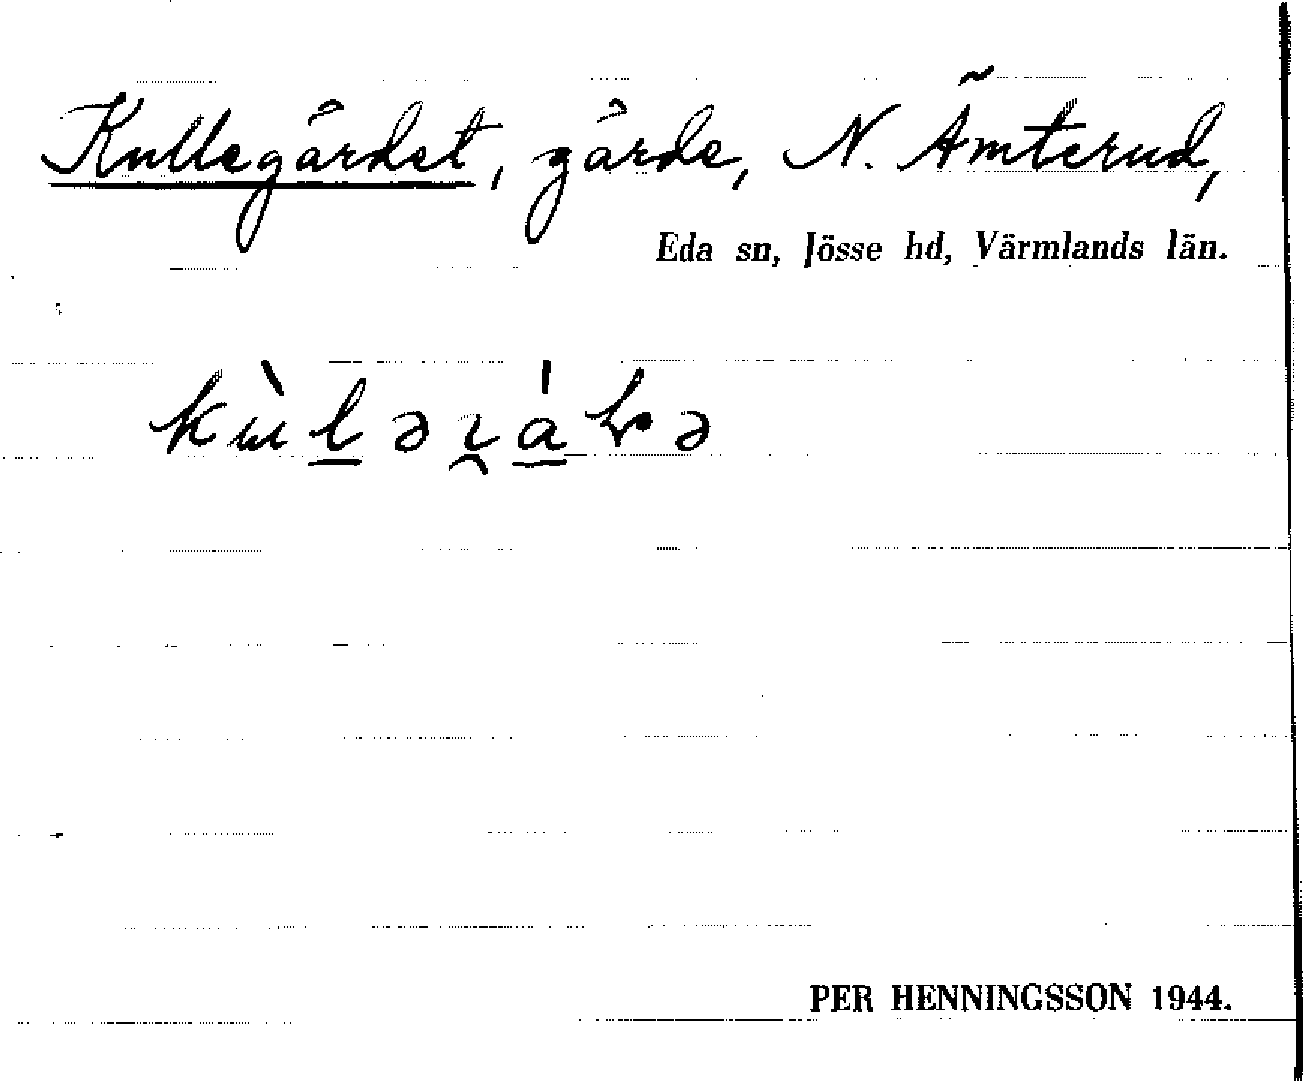 Kullegärdet, gärde, N. Ämterud,
Eda sn, Jösse hd, Värmlands län.
PER HENNINGSSON 1944.